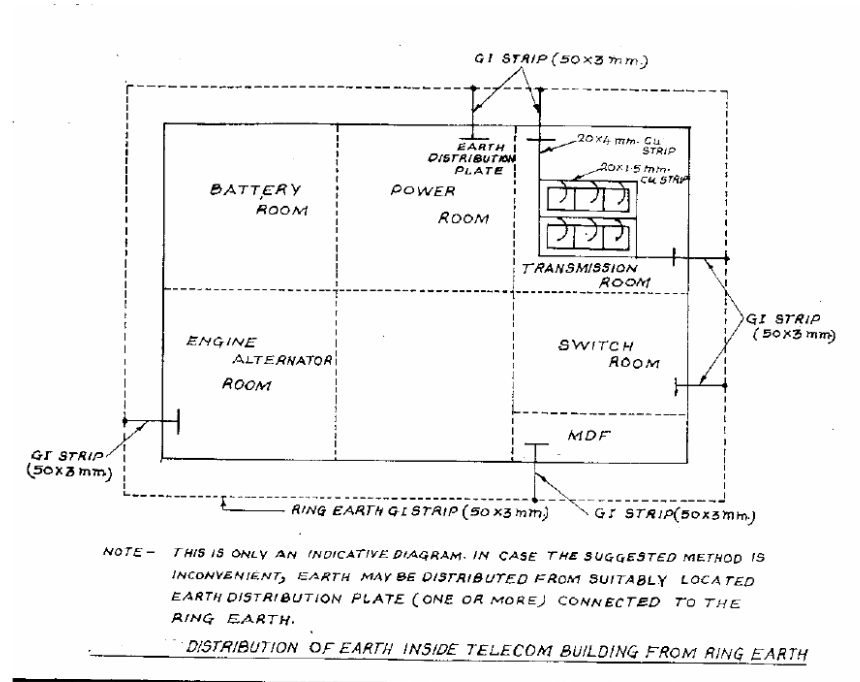 GI STRIP (50×3 mm.)
20×4 mm. Cu
STRIP
EARTH
DISTRIBUTION
PLATE
20×1.5 mm.
Cu STRIP
BATTERY
ROOM
POWER
ROOM
TRANSMISSION
ROOM
GI STRIP
(50×3 mm)
ENGINE
ALTERNATOR
ROOM
SWITCH
ROOM
MDF
GI STRIP
(50×3 mm.)
RING EARTH GI STRIP (50×3 mm)
GI STRIP(50×3 mm.)
NOTE - THIS IS ONLY AN INDICATIVE DIAGRAM. IN CASE THE SUGGESTED METHOD IS
INCONVENIENT, EARTH MAY BE DISTRIBUTED FROM SUITABLY LOCATED
EARTH DISTRIBUTION PLATE (ONE OR MORE) CONNECTED TO THE
RING EARTH.
DISTRIBUTION OF EARTH INSIDE TELECOM BUILDING FROM RING EARTH